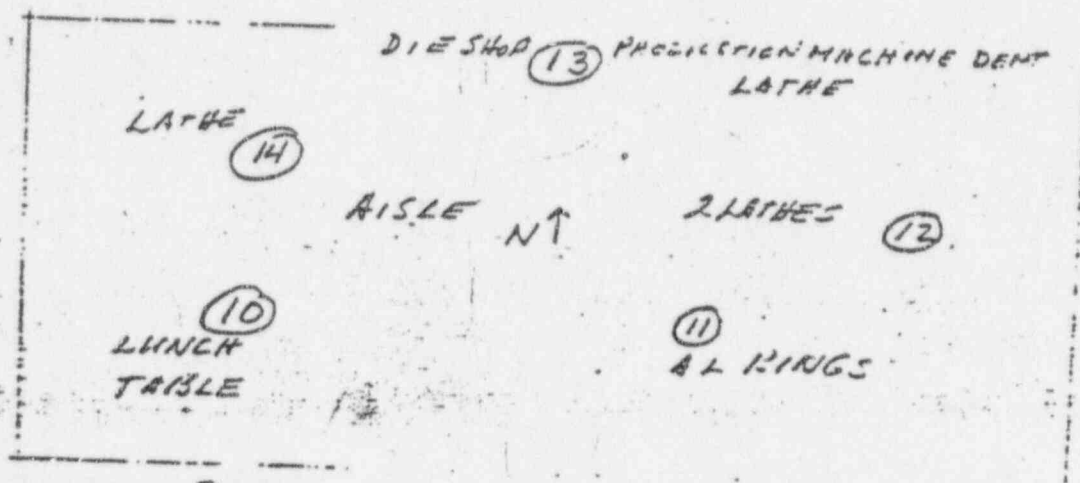 DIE SHOP 13 PRODUCTION MACHINE DEPT
LATHE
LATHE
14
AISLE N↑ 2 LATHES 12
10 11
LUNCH AL RINGS
TABLE